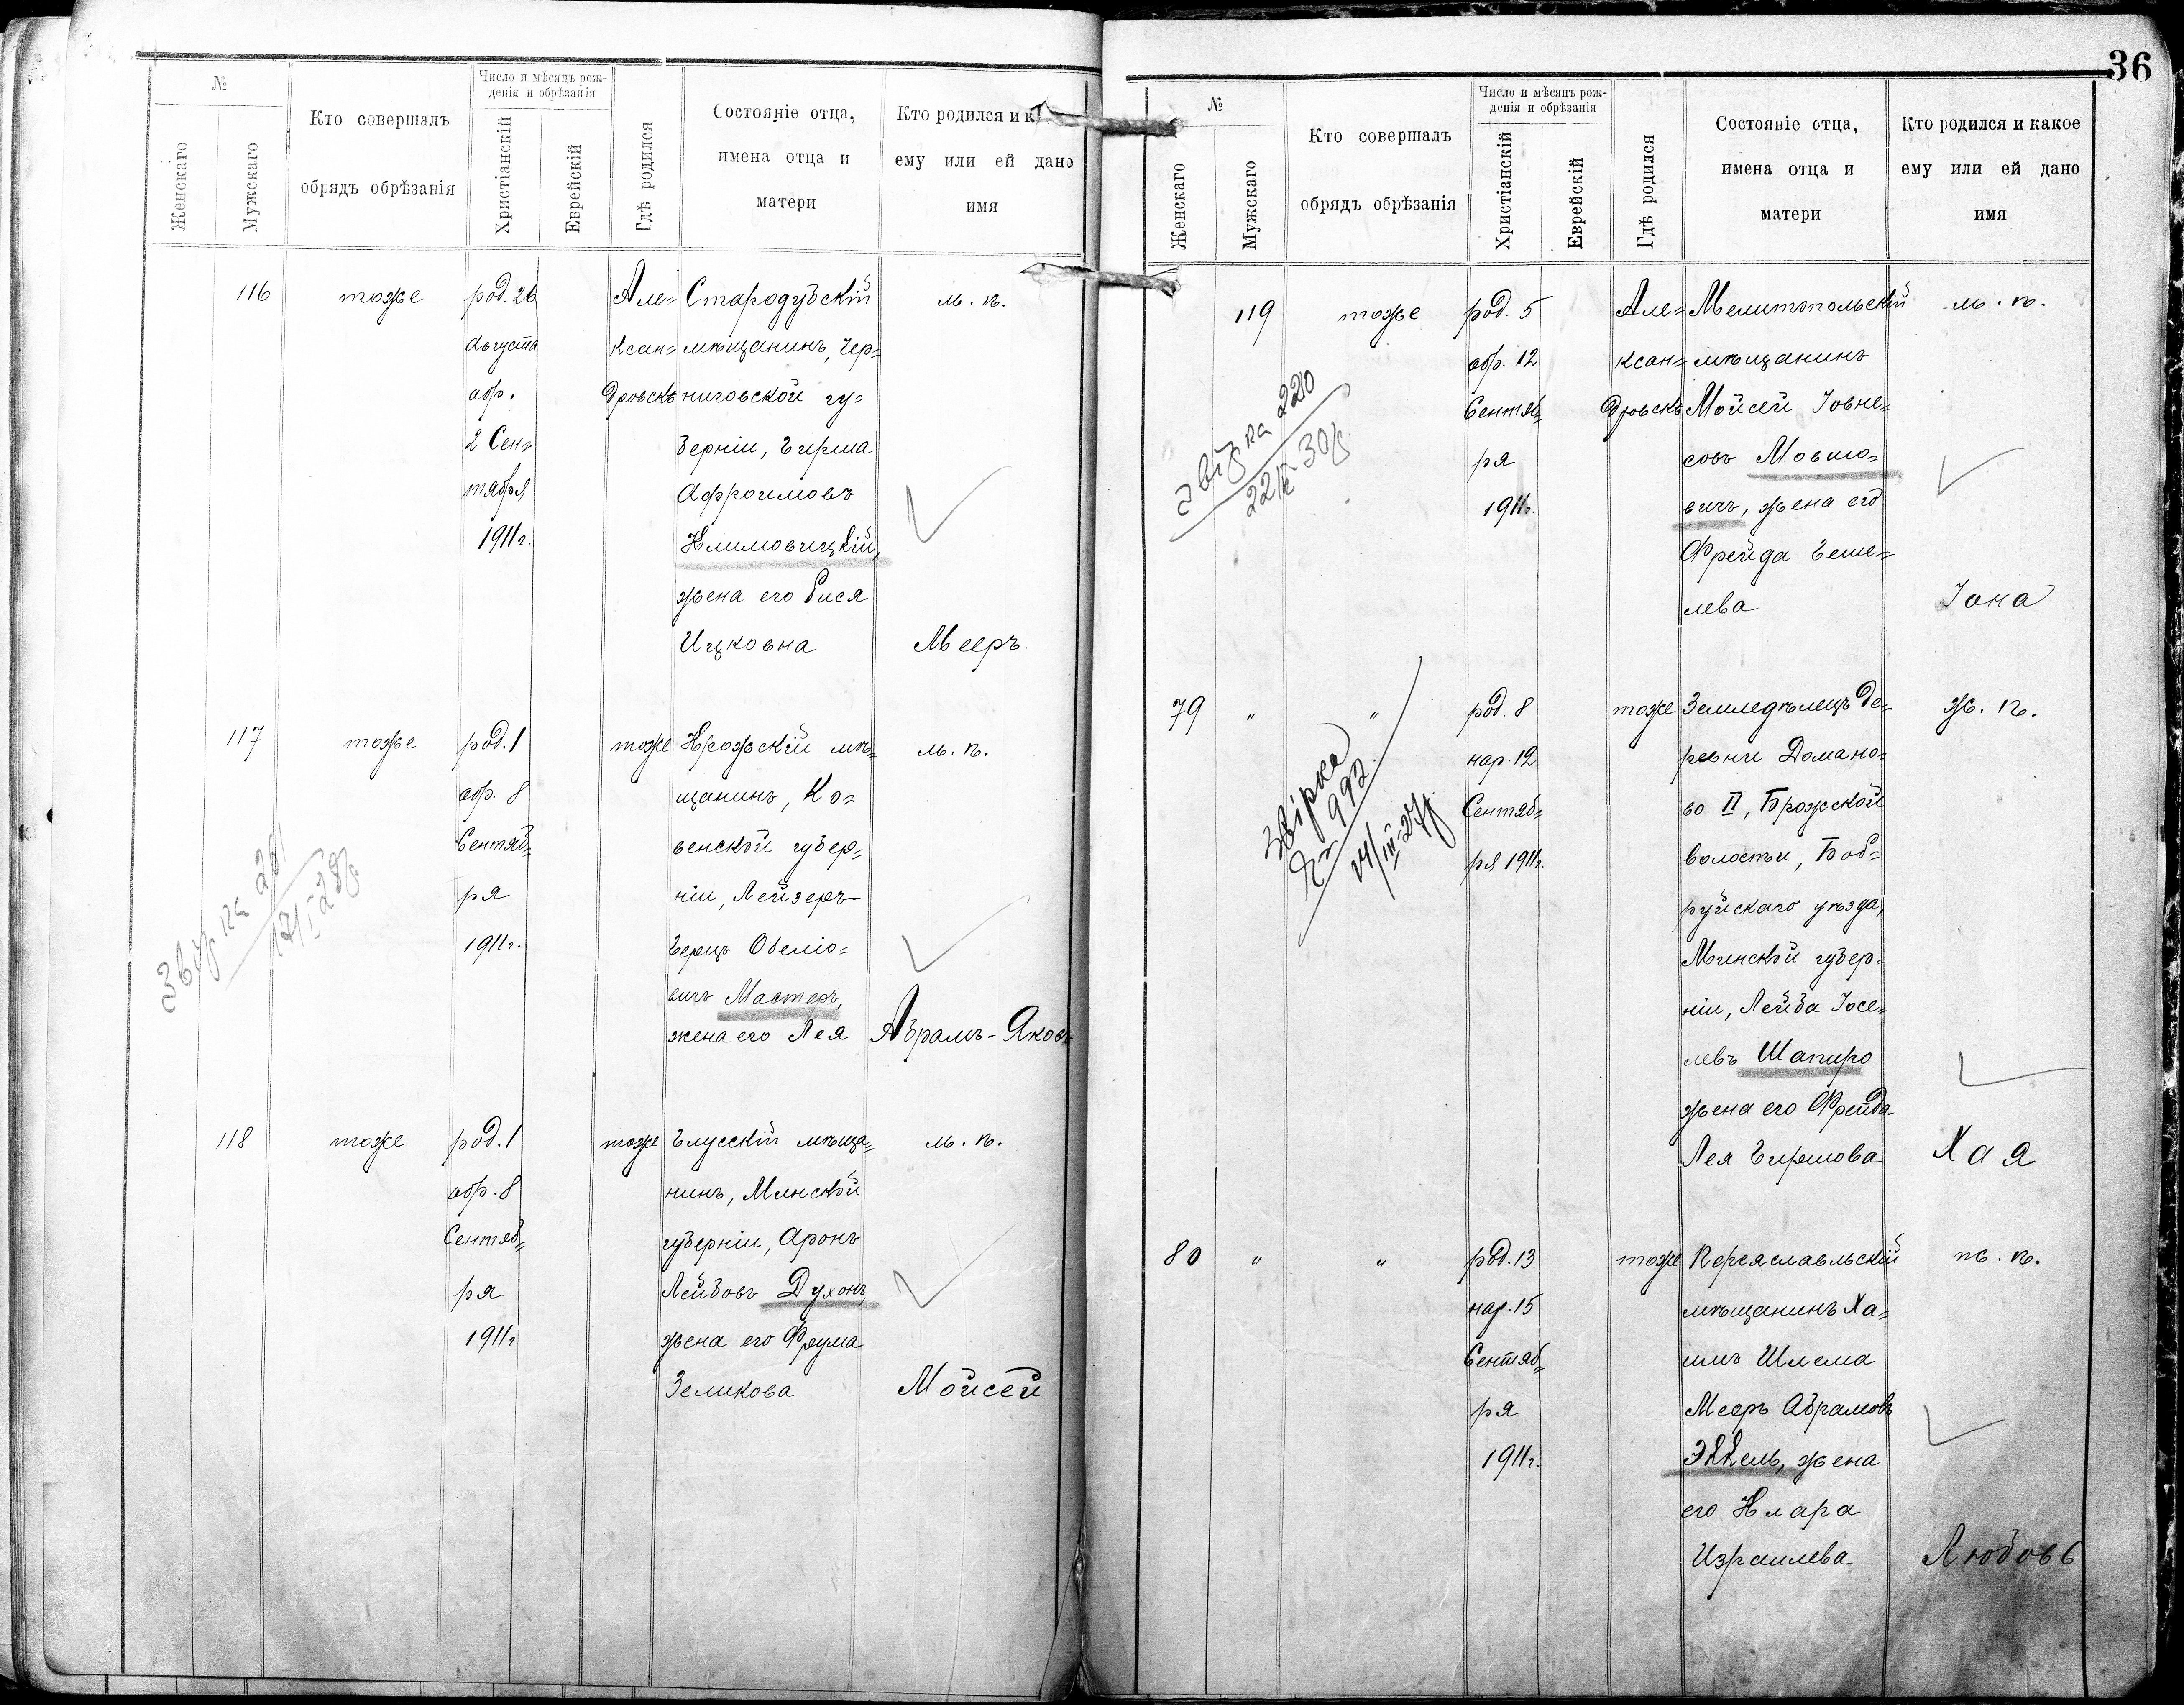 №
Женскаго
Мужскаго
Кто совершалъ
обрядъ обрѣзанія
Число и мѣсяцъ рож-
денія и обрѣзанія
Христіанскій
Еврейскій
Гдѣ родился
Состояніе отца,
имена отца и
матери
Кто родился и к
ему или ей дано
имя
116
тоже
род. 26
Августа
обр.
2 Сен=
тября
1911г.
Але=
ксан=
дровскъ
Стародубскій
мѣщанинъ, Чер=
ниговской гу=
берніи, Гирша
Афроимовъ
Климовицкій,
жена его Бися
Ицковна
м. п.
Мееръ.
117
тоже
род. 1
обр. 8
Сентяб=
ря
1911г.
тоже
Крожскій мѣ=
щанинъ, Ко=
венской губер=
ніи, Лейзеръ
Герцъ Овеліо=
вичъ Мастеръ,
жена его Лея
м. п.
Абрамъ-Яковъ
звірка
118
тоже
род. 1
обр. 8
Сентяб=
ря
1911г
тоже
Глусскій мѣща=
нинъ, Минской
губерніи, Аронъ
Лейбовъ Духонъ,
жена его Фрума
Зеликова
м. п.
Мойсей
36
№
Женскаго
Мужскаго
Кто совершалъ
обрядъ обрѣзанія
Число и мѣсяцъ рож-
денія и обрѣзанія
Христіанскій
Еврейскій
Гдѣ родился
Состояніе отца,
имена отца и
матери
Кто родился и какое
ему или ей дано
имя
119
тоже
род. 5
обр. 12
Сентяб=
ря
1911г.
Але=
ксан=
дровскъ
Мелитопольскій
мѣщанинъ
Мойсей Іовне=
совъ Мовшо=
вичъ, жена его
Фрейда Геше=
лева
м. п.
Іона
звірка 220
79
"
"
род. 8
нар. 12
Сентяб=
ря 1911г.
тоже
Земледѣлецъ де=
ревни Домано=
во II, Брожской
волости, Боб=
руйскаго уѣзда,
Минской губер=
ніи, Лейба Іосе=
левъ Шапиро
жена его Фрейда
Лея Гиршова
ж. п.
Хая
звірка
992
80
"
"
род. 13
нар. 15
Сентяб=
ря
1911г.
тоже
Переяславльскій
мѣщанинъ Ха=
имъ Шлема
Мееръ Абрамовъ
Эккель, жена
его Клара
Израилева
ж. п.
Любовь